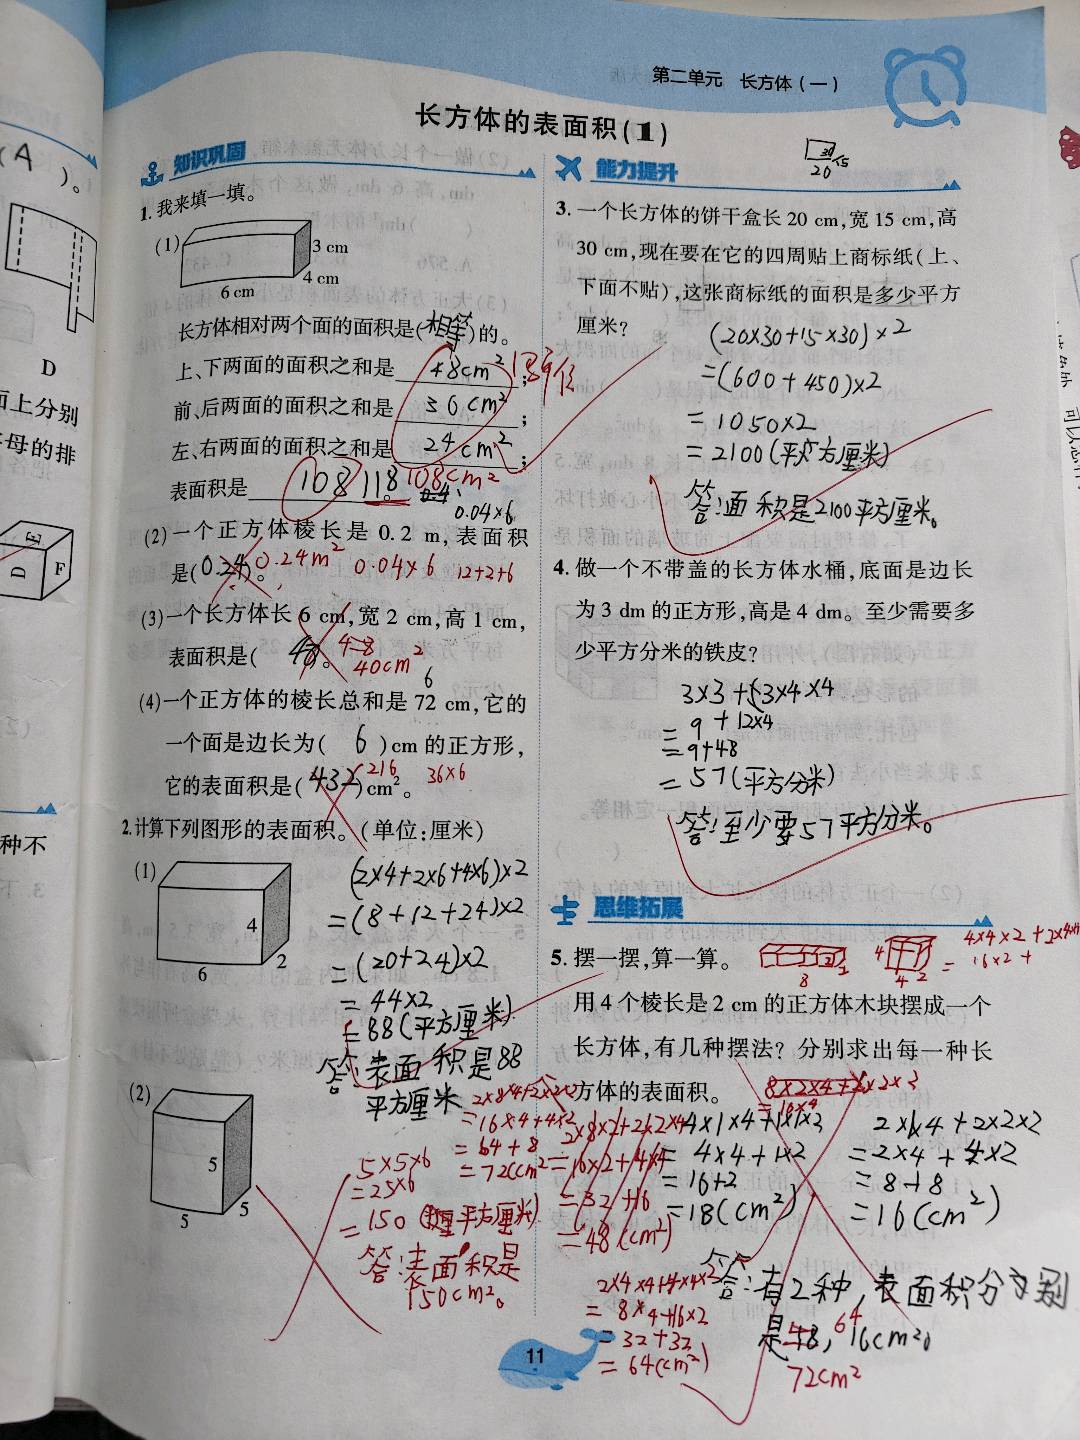 第二单元　长方体(一)
长方体的表面积(1)
(A
)。
D
面上分别
字母的排
E
D
F
种不
知识巩固
1. 我来填一填。
(1)
3 cm
4 cm
6 cm
长方体相对两个面的面积是(相等)的。
上、下两面的面积之和是 48cm² ;
前、后两面的面积之和是 36cm² ;
左、右两面的面积之和是 24cm² ;
表面积是 108 118 108cm²
0.04×6
(2)一个正方体棱长是 0.2 m,表面积
是(0.24)。0.24m² 0.04×6 12+2+6
(3)一个长方体长 6 cm,宽 2 cm,高 1 cm,
表面积是( 。
40cm²
6
(4)一个正方体的棱长总和是 72 cm,它的
一个面是边长为( 6 )cm 的正方形,
它的表面积是(432)cm²。 216 36×6
2.计算下列图形的表面积。(单位:厘米)
(1)
4
6
2
(2×4+2×6+4×6)×2
=(8+12+24)×2
=(20+24)×2
=44×2
=88(平方厘米)
答:表面积是88
平方厘米
(2)
5
5
5
5×5×6
=25×6
=150(平方厘米)
答:表面积是
150cm²。
能力提升
20
3. 一个长方体的饼干盒长 20 cm,宽 15 cm,高
30 cm,现在要在它的四周贴上商标纸(上、
下面不贴),这张商标纸的面积是多少平方
厘米?
(20×30+15×30)×2
=(600+450)×2
=1050×2
=2100(平方厘米)
答:面积是2100平方厘米。
4. 做一个不带盖的长方体水桶,底面是边长
为 3 dm 的正方形,高是 4 dm。至少需要多
少平方分米的铁皮?
3×3+(3×4×4
=9+12×4
=9+48
=57(平方分米)
答:至少要57平方分米。
思维拓展
5. 摆一摆,算一算。
8
4
4 2
=16×2+
用 4 个棱长是 2 cm 的正方体木块摆成一个
长方体,有几种摆法? 分别求出每一种长
方体的表面积。
=16×4+4×2
=64+8
=72(cm²
=16×2+4×4
=32+16
=48(cm²)
4×1×4+1×1×2
=4×4+1×2
=16+2
=18(cm²)
2×1×4+2×2×2
=2×4+4×2
=8+8
=16(cm²)
2×4×4+4×4×2
=8×4+16×2
=32+32
=64(cm²)
答:有2种,表面积分别
是 64, 16cm²。
72cm²
11